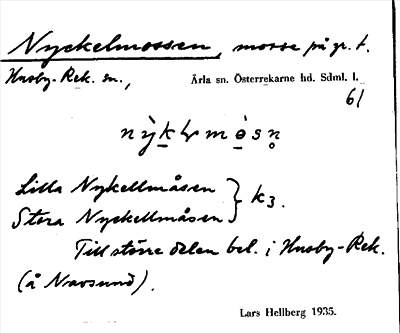 Nyckelmossen, mosse på gr. t.
Husby-Rek. sn., Ärla sn. Österrekarne hd. Sdml. l.
61
Lilla Nykellmåsen
Stora Nyckellmåsen } k3.
Till större delen bel. i Husby-Rek.
(å Navsund).
Lars Hellberg 1935.